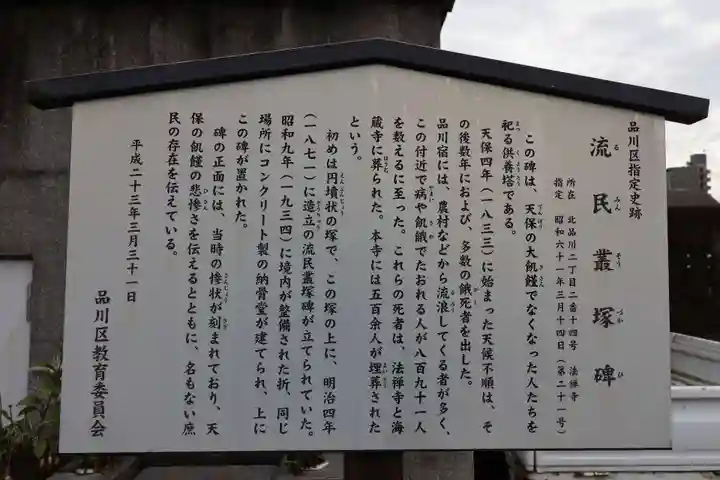 品川区指定史跡
流民叢塚碑
る みん そう づか ひ
所在 北品川二丁目二番十四号 法禅寺
指定 昭和六十一年三月十四日(第二十一号)
この碑は、天保の大飢饉でなくなった人たちを
祀る供養塔である。
天保四年(一八三三)に始まった天候不順は、そ
の後数年におよび、多数の餓死者を出した。
品川宿には、農村などから流浪してくる者が多く、
この付近で病や飢餓でたおれる人が八百九十一人
を数えるに至った。これらの死者は、法禅寺と海
蔵寺に葬られた。本寺には五百余人が埋葬された
という。
初めは円墳状の塚で、この塚の上に、明治四年
(一八七一)に造立の流民叢塚碑が立てられていた。
昭和九年(一九三四)に境内が整備された折、同じ
場所にコンクリート製の納骨堂が建てられ、上に
この碑が置かれた。
碑の正面には、当時の惨状が刻まれており、天
保の飢饉の悲惨さを伝えるとともに、名もない庶
民の存在を伝えている。
平成二十三年三月三十一日
品川区教育委員会